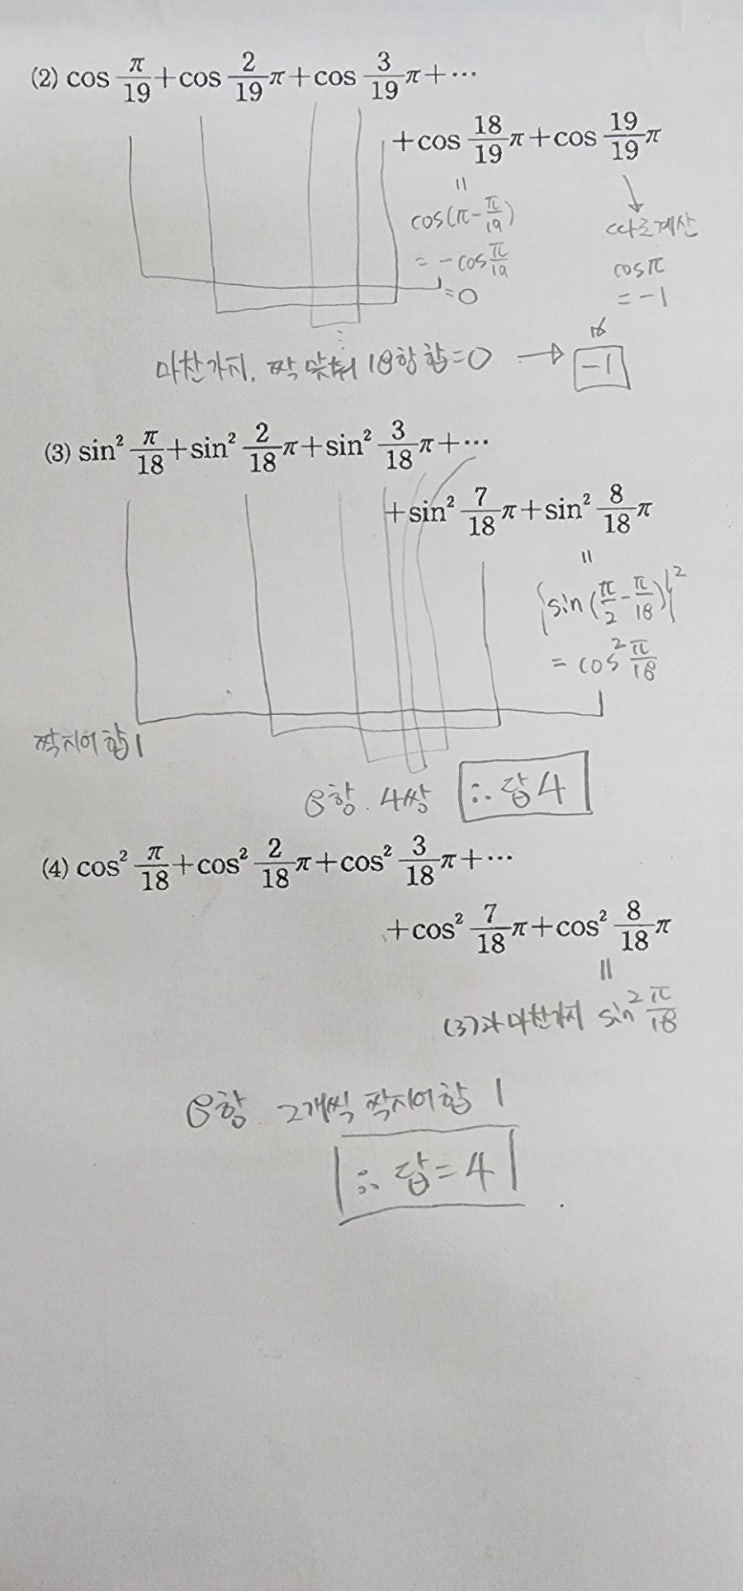 (2) cos π/19 + cos 2/19 π + cos 3/19 π + ⋯
+ cos 18/19 π + cos 19/19 π
=
cos(π - π/19)
= -cos π/19
=0
따로계산
cosπ
= -1
마찬가지. 짝 맞춰 18항 합=0 → -1
(3) sin² π/18 + sin² 2/18 π + sin² 3/18 π + ⋯
+ sin² 7/18 π + sin² 8/18 π
=
{sin(π/2 - π/18)}²
= cos² π/18
짝지어 합 1
8항. 4쌍 ∴ 답 4
(4) cos² π/18 + cos² 2/18 π + cos² 3/18 π + ⋯
+ cos² 7/18 π + cos² 8/18 π
=
(3)과 마찬가지 sin² π/18
8항 2개씩 짝지어 합 1
∴ 답 = 4